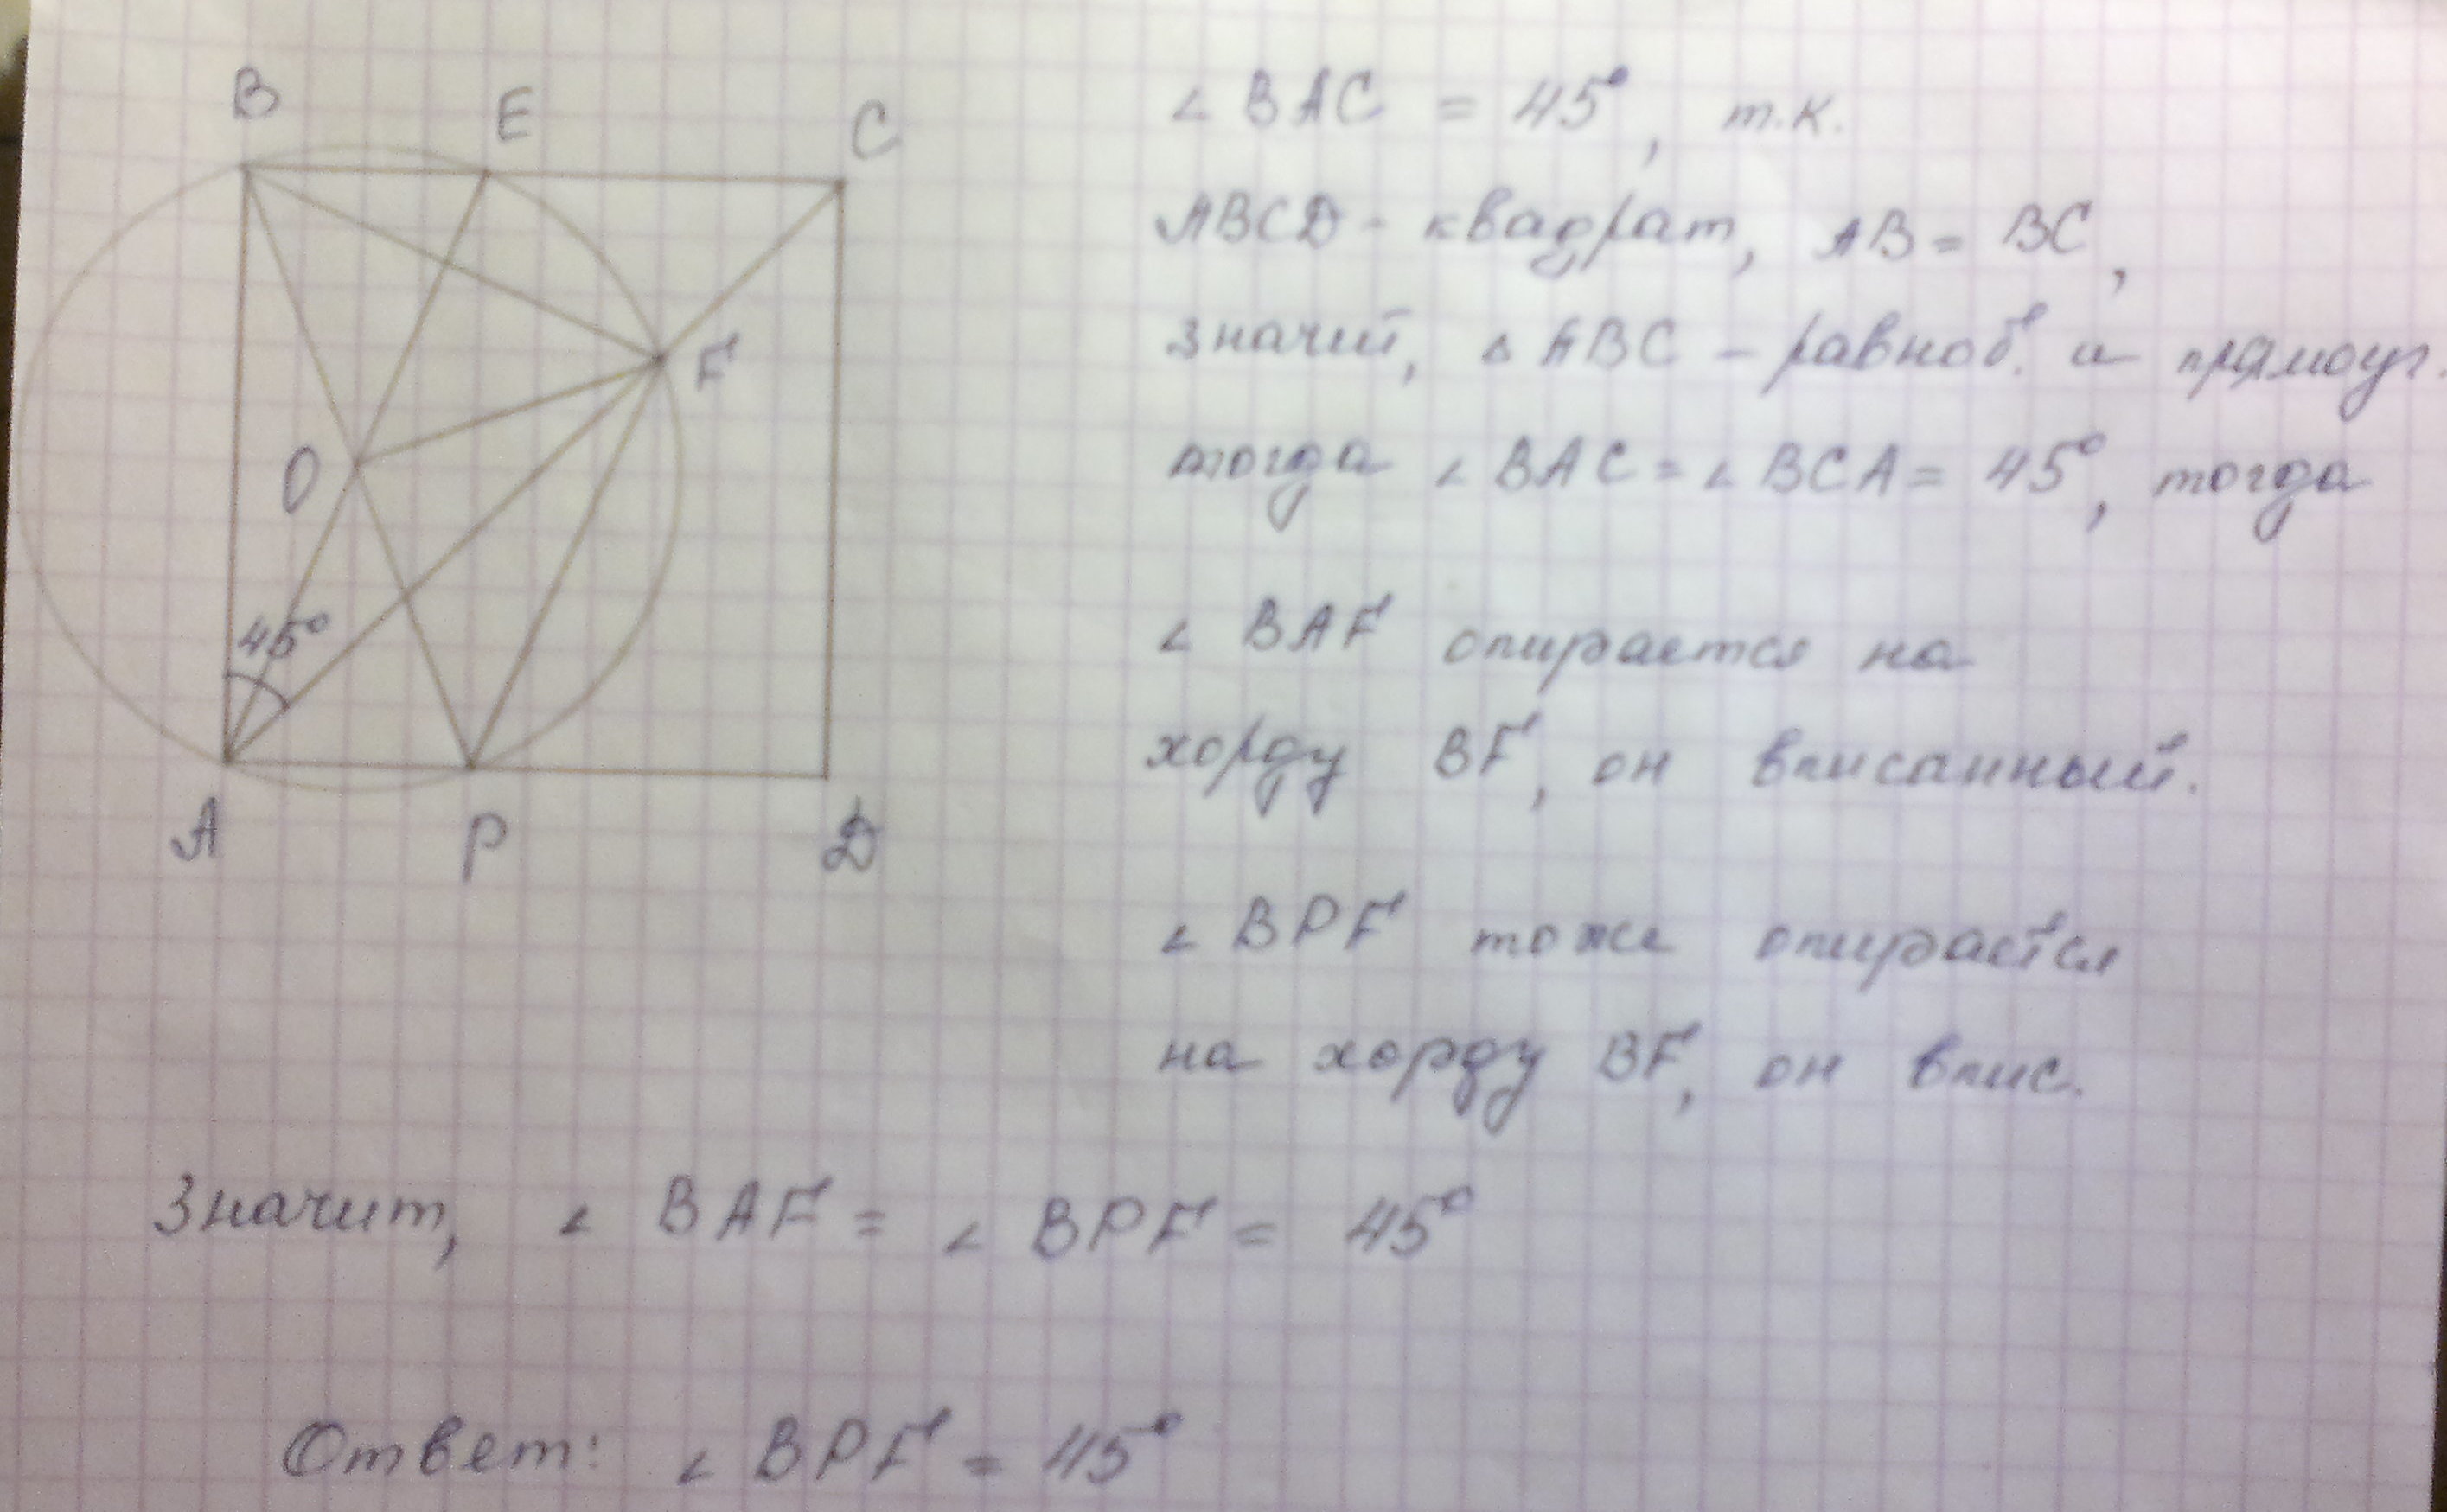 B E C
O F
45°
A P D
∠ BAC = 45°, т.к.
ABCD - квадрат, AB = BC,
значит, △ ABC - равноб. и прямоуг.
тогда ∠ BAC = ∠ BCA = 45°, тогда
∠ BAF опирается на
хорду BF, он вписанный.
∠ BPF тоже опирается
на хорду BF, он впис.
Значит, ∠ BAF = ∠ BPF = 45°
Ответ: ∠ BPF = 45°